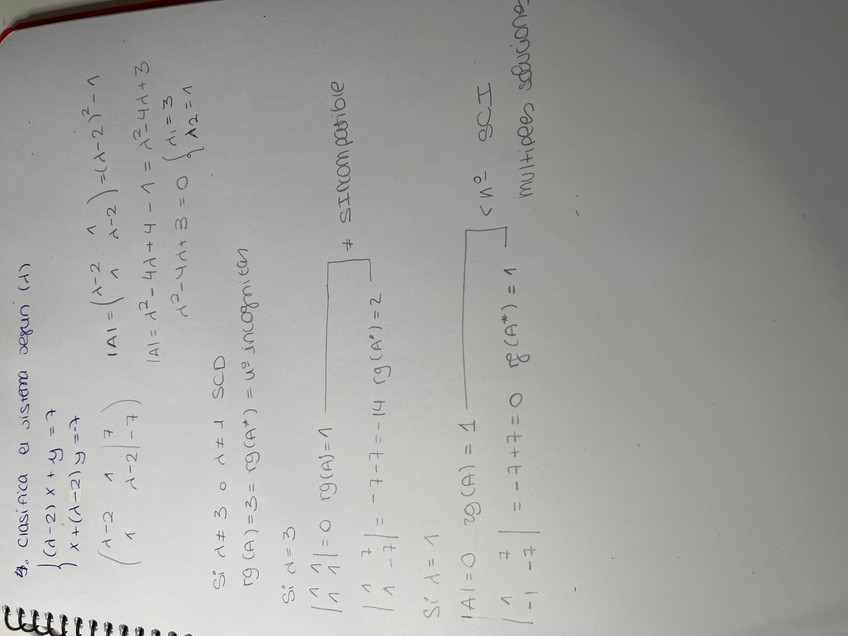 4. Clasifica el sistema según (λ)
{ (λ-2)x + y = 7
x + (λ-2)y = -7
( λ-2 1 | 7
1 λ-2 | -7 )
|A| = ( λ-2 1
1 λ-2 ) = (λ-2)² - 1
|A| = λ² - 4λ + 4 - 1 = λ² - 4λ + 3
λ² - 4λ + 3 = 0 { λ1 = 3
λ2 = 1
Si λ ≠ 3 o λ ≠ 1 SCD
rg(A) = 3 = rg(A*) = nº incognitas
Si λ = 3
| 1 1
1 1 | = 0 rg(A) = 1
≠ SIncompatible
| 1 7
1 -7 | = -7 - 7 = -14 rg(A*) = 2
Si λ = 1
|A| = 0 rg(A) = 1
< nº SCI
| 1 7
-1 -7 | = -7 + 7 = 0 rg(A*) = 1
multiples solucione